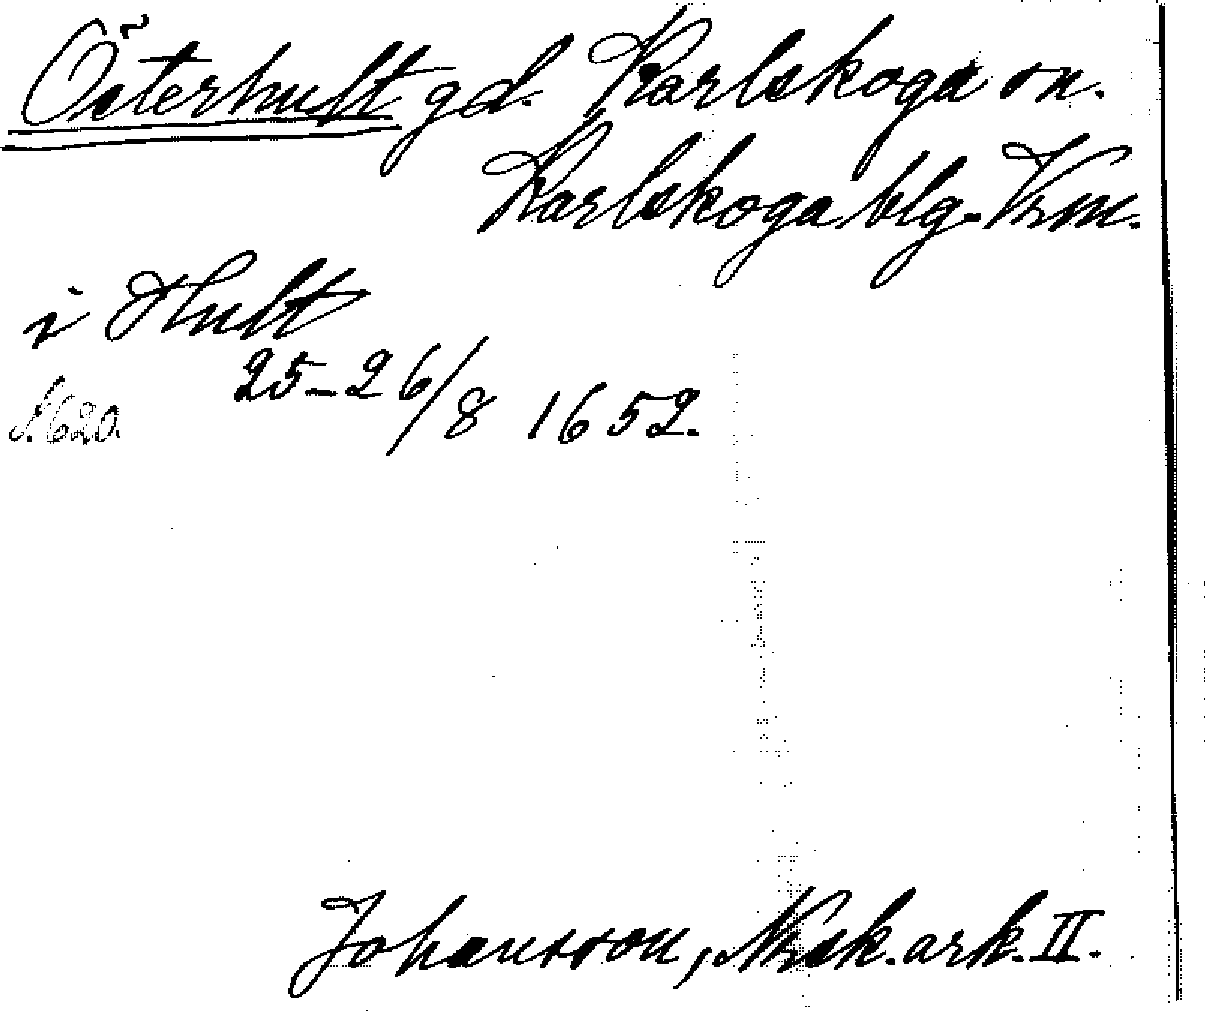 Österhult gd. Karlskoga sn.
Karlskoga blg. Vrm.
i Hult
25-26/8 1652.
S. 620.
Johansson, Nzsk. ark. II.